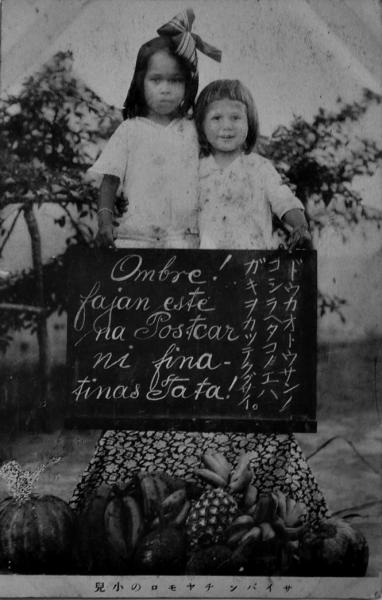 Ombre!
fajan este
na Postcar
ni fina-
tinas Tata!
ドウカオトウサンノ
コシラヘタコノエハ
ガキヲカツテクダサイ。
サイパンチヤモロの小兒